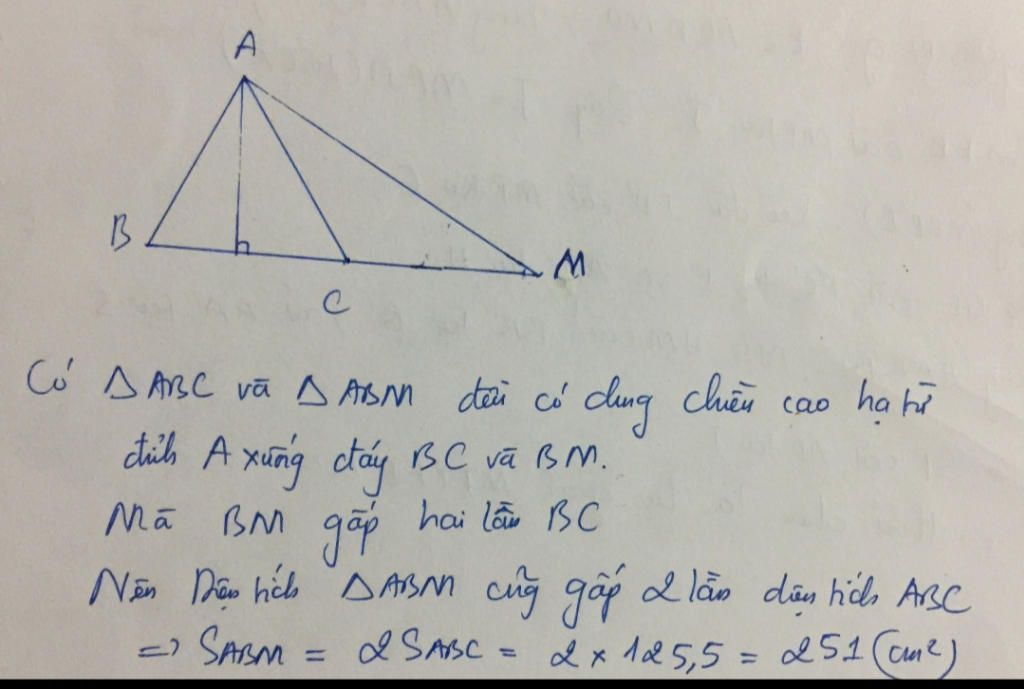 A
B
M
C
Có △ABC và △ABM đều có chung chiều cao hạ từ
đỉnh A xuống đáy BC và BM.
Mà BM gấp hai lần BC
Nên Diện tích △ABM cũng gấp 2 lần diện tích ABC
=> SABM = 2SABC = 2 x 125,5 = 251 (cm²)